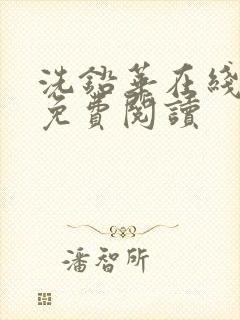 洗鉛華在綫
免費閱讀
潘智所